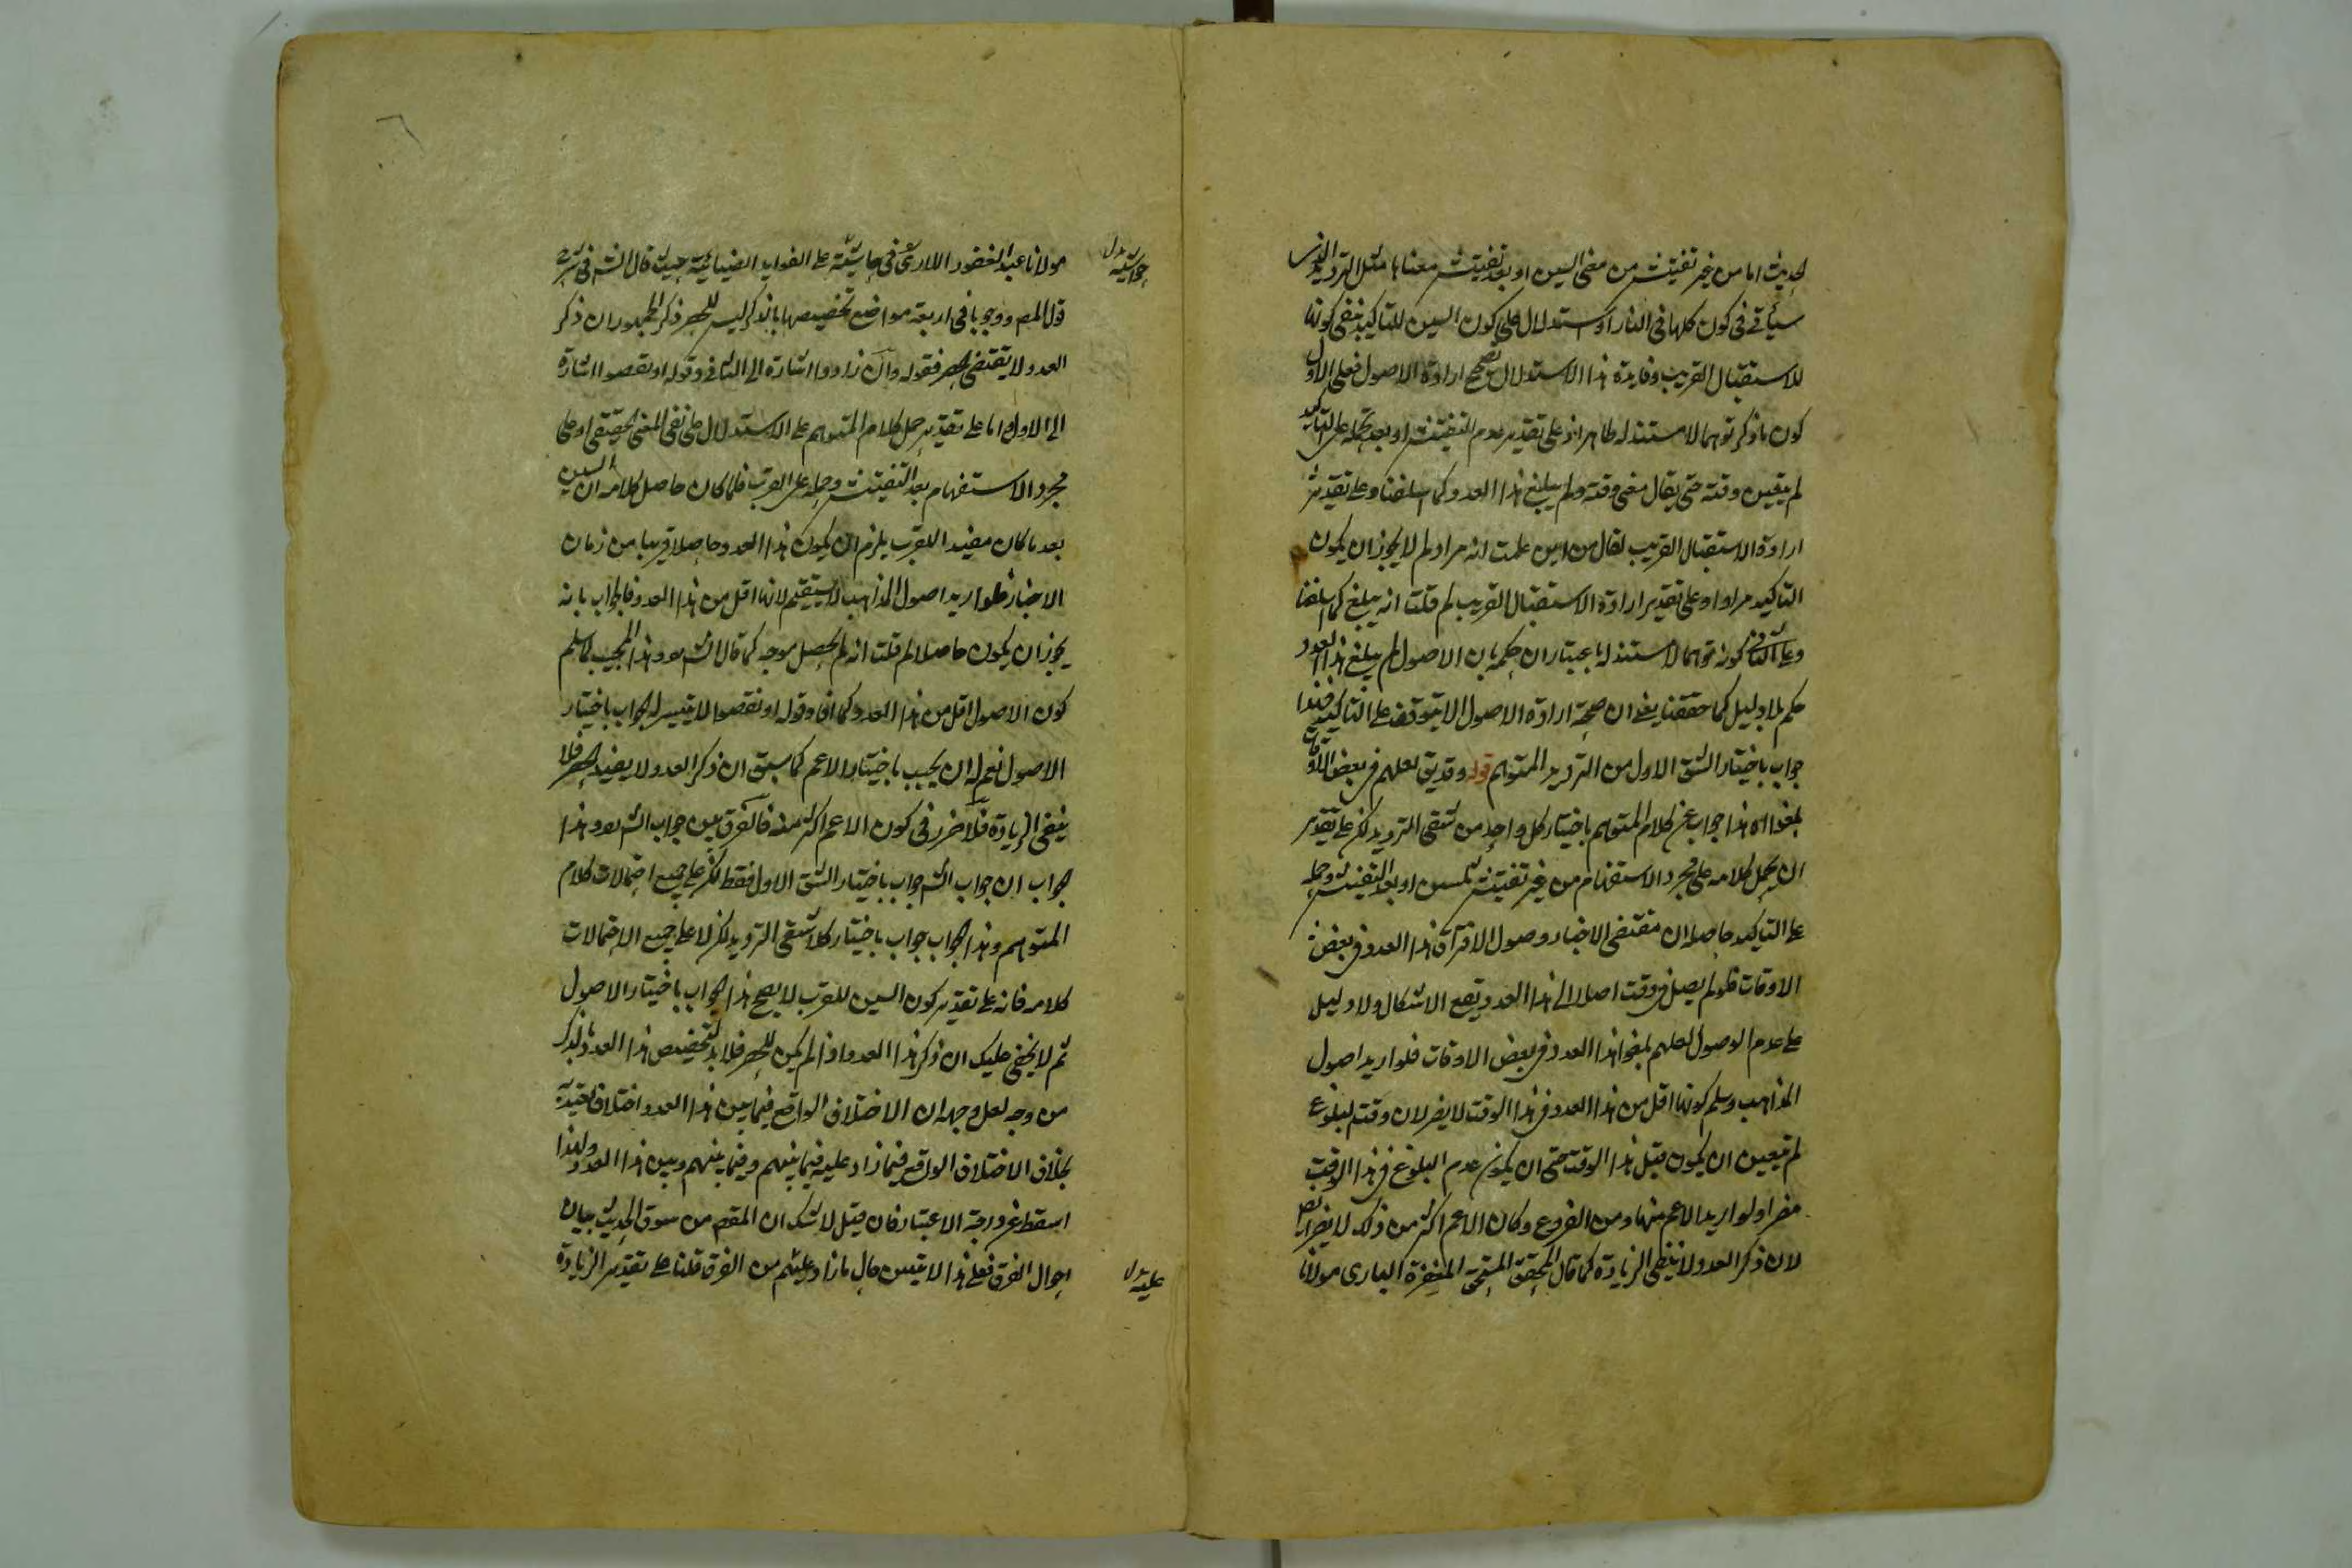 الحديث اما من غير تفتيش من معنى السين او بعد تفتيش معناها مثل الترديد الذي
سيأتي في كون كلها في النار او استدلال على كون السين للتاكيد بنفى كونها
للاستقبال القريب وفايدة هذا الاستدلال تصحيح ارادة الاصول فعلى الاول
كون ما ذكر توهما لا مستند له ظاهر اذ على تقدير عدم التفتيش او بعد حمله على التاكيد
لم يتعين وقته حتى يقال مضى وقته ولم يبلغ هذا العدد كما اسلفنا وعلى تقدير
ارادة الاستقبال القريب لقال من اين علمت انه مراد لم لا يجوز ان يكون
التاكيد مرادا وعلى تقدير ارادة الاستقبال القريب لم قلت انه يبلغ كما اسلفنا
وعلى الثانى كونه توهما لا مستند له باعتبار ان حكمه بان الاصول لم يبلغ هذا العدد
حكم بلا دليل كما حققنا يعنى ان صحة ارادة الاصول لا يتوقف على التاكيد فهذا
جواب باختيار الشق الاول من الترديد المتوهم قوله وقد يق لعلهم في بعض الاوقات
بلغوا اه هذا جواب عن كلام المتوهم باختيار كل واحد من شقى الترديد لكن على تقدير
ان يحمل كلامه على مجرد الاستفهام من غير تفتيش للسين او بعد التفتيش وحمله
على التاكيد حاصله ان مقتضى الاخبار وصول الافتراق هذا العدد في بعض
الاوقات فلو لم يصل في وقت اصلا الى هذا العدد يقع الاشكال ولا دليل
على عدم الوصول لعلهم بلغوا هذا العدد في بعض الاوقات فلو اريد اصول
المذاهب وسلم كونها اقل من هذا العدد في هذا الوقت لا يضر لان وقت البلوغ
لم يتعين ان يكون قبل هذا الوقت حتى ان يكون عدم البلوغ في هذا الوقت
مضرا ولو اريد الاعم منها ومن الفروع وكان الاعم اكثر من ذلك لا يضر ايضا
لان ذكر العدد لا ينفى الزيادة كما قال المحقق المستحق المغفرة البارى مولانا
مولانا عبد الغفور اللارى في حاشيته على الفوايد الضيائية حيث قال الش في شرح
قول المص ووجوبا في اربعة مواضع تخصيصها بالذكر ليس للحصر ذكر الجمهور ان ذكر
العدد لا يقتضى الحصر فقوله وان زادوا اشارة الى الثانى وقوله او نقصوا اشارة
الى الاول اما على تقدير حمل كلام المتوهم على الاستدلال على نفى المعنى الحقيقى او على
مجرد الاستفهام بعد التفتيش وحمله على القرب فلما كان حاصل كلامه ان السين
بعد ما كان مفيدا للقرب يلزم ان يكون هذا العدد حاصلا قريبا من زمان
الاخبار فلو اريد اصول المذاهب لا يستقيم لانها اقل من هذا العدد فالجواب بانه
يجوز ان يكون حاصلا لم قلت انه لم يحصل موجه كما قال الش وهذا المجيب لما سلم
كون الاصول اقل من هذا العدد كما افاد قوله او نقصوا لا يتيسر له الجواب باختيار
الاصول نعم له ان يجيب باختيار الاعم كما سبق ان ذكر العدد لا يفيد الحصر فلا
ينفى الزيادة فلا ضرر في كون الاعم اكثر منه فالفرق بين جواب الش وهذا
الجواب ان جواب الش جواب باختيار الشق الاول فقط لكن على جميع احتمالات كلام
المتوهم وهذا الجواب جواب باختيار كلا شقى الترديد لكن لا على جميع الاحتمالات
كلامه فانه على تقدير كون السين للقرب لا يصح هذا الجواب باختيار الاصول
ثم لا يخفى عليك ان ذكر هذا العدد اذا لم يكن للحصر فلا بد لتخصيص هذا العدد بالذكر
من وجه لعل وجهه ان الاختلاف الواقع فيما بين هذا العدد اختلاف يعتد به
بخلاف الاختلاف الواقع فيما زاد عليه فيما بينهم وفيما بينهم وبين هذا العدد ولهذا
اسقط عن درجة الاعتبار فان قيل لا شك ان المقصود من سوق الحديث بيان
احوال الفرق فعلى هذا لا يتبين حال ما زاد عليهم من الفرق قلنا على تقدير الزيادة
حواشيه بدل
عليه بدل